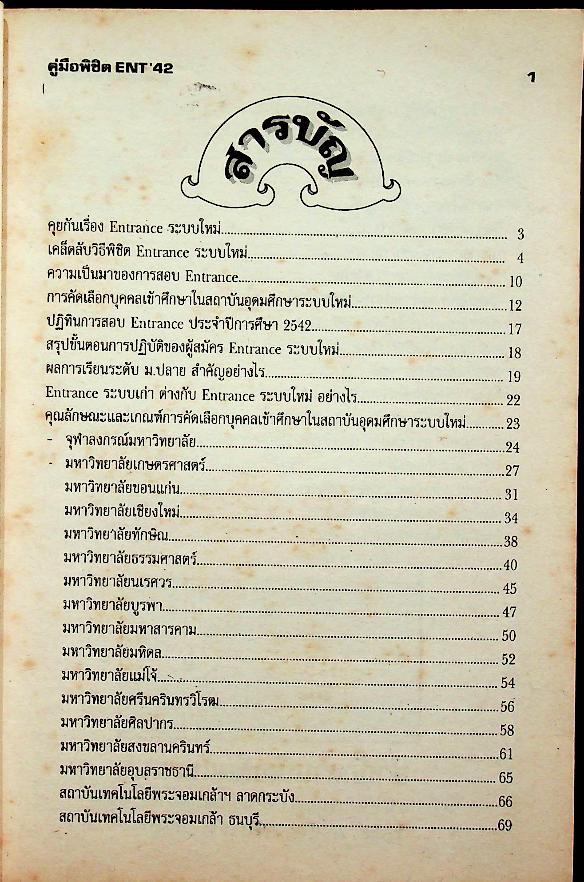 คู่มือพิชิต ENT '42
1
สารบัญ
คุยกันเรื่อง Entrance ระบบใหม่ 3
เคล็ดลับวิธีพิชิต Entrance ระบบใหม่ 4
ความเป็นมาของการสอบ Entrance 10
การคัดเลือกบุคคลเข้าศึกษาในสถาบันอุดมศึกษาระบบใหม่ 12
ปฏิทินการสอบ Entrance ประจำปีการศึษา 2542 17
สรุปขั้นตอนการปฏิบัติของผู้สมัคร Entrance ระบบใหม่ 18
ผลการเรียนระดับ ม.ปลาย สำคัญอย่างไร 19
Entrance ระบบเก่า ต่างกับ ระบบใหม่ อย่างไร 22
คุณลักษณะและเกณฑ์การคัดเลือกบุคคลเข้าศึกษาในสถาบันอุดมศึกษาระบบใหม่ 23
- จุฬาลงกรณ์มหาวิทยาลัย 24
- มหาวิทยาลัยเกษตรศาสตร์ 27
มหาวิทยาลัยขอนแก่น 31
มหาวิทยาลัยเชียงใหม่ 34
มหาวิทยาลัยทักษิณ 38
มหาวิทยาลัยธรรมศาสตร์ 40
มหาวิทยาลัยนเรศวร 45
มหาวิทยาลัยบูรพา 47
มหาวิทยาลัยมหาสารคาม 50
มหาวิทยาลัยมหิดล 52
มหาวิทยาลัยแม่โจ้ 54
มหาวิทยาลัยศรีนครินทรวิโรฒ 56
มหาวิทยาลัยศิลปากร 58
มหาวิทยาลัยสงขลานครินทร์ 61
มหาวิทยาลัยอุบลราชธานี 65
สถาบันเทคโนโลยีพระจอมเกล้าฯ ลาดกระบัง 66
สถาบันเทคโนโลยีพระจอมเกล้า ธนบุรี 69